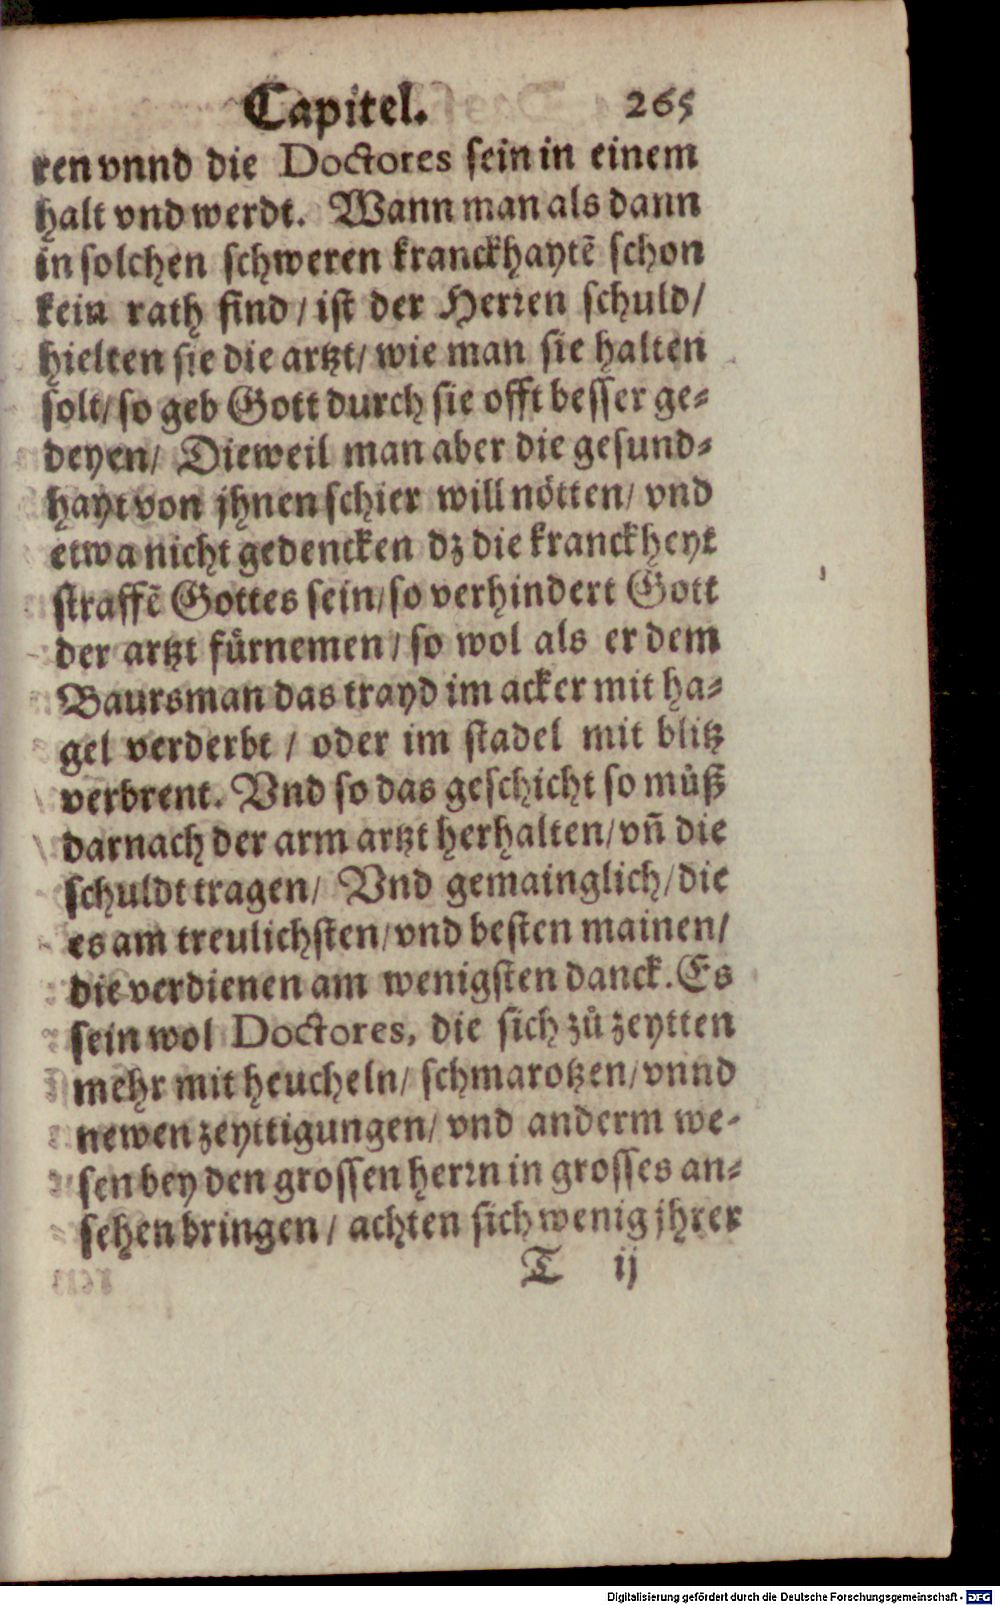 Capitel. 265
ren vnnd die Doctores sein in einem
halt vnd werdt. Wann man als dann
in solchen schweren kranckhaytẽ schon
kein rath find / ist der Herren schuld /
hielten sie die artzt / wie man sie halten
solt / so geb Gott durch sie offt besser ge⸗
deyen / Dieweil man aber die gesund⸗
hayt von jhnen schier will nötten / vnd
etwa nicht gedencken dz die kranckheyt
straffẽ Gottes sein / so verhindert Gott
der artzt fürnemen / so wol als er dem
Baursman das trayd im acker mit ha⸗
gel verderbt / oder im stadel mit blitz
verbrent. Vnd so das geschicht so můß
darnach der arm artzt herhalten / vñ die
schuldt tragen / Vnd gemainglich / die
es am treulichsten / vnd besten mainen /
die verdienen am wenigsten danck. Es
sein wol Doctores, die sich zů zeytten
mehr mit heucheln / schmarotzen / vnnd
newen zeyttigungen / vnd anderm we⸗
sen bey den grossen herrn in grosses an⸗
sehen bringen / achten sich wenig jhrer
T ij
Digitalisierung gefördert durch die Deutsche Forschungsgemeinschaft - DFG